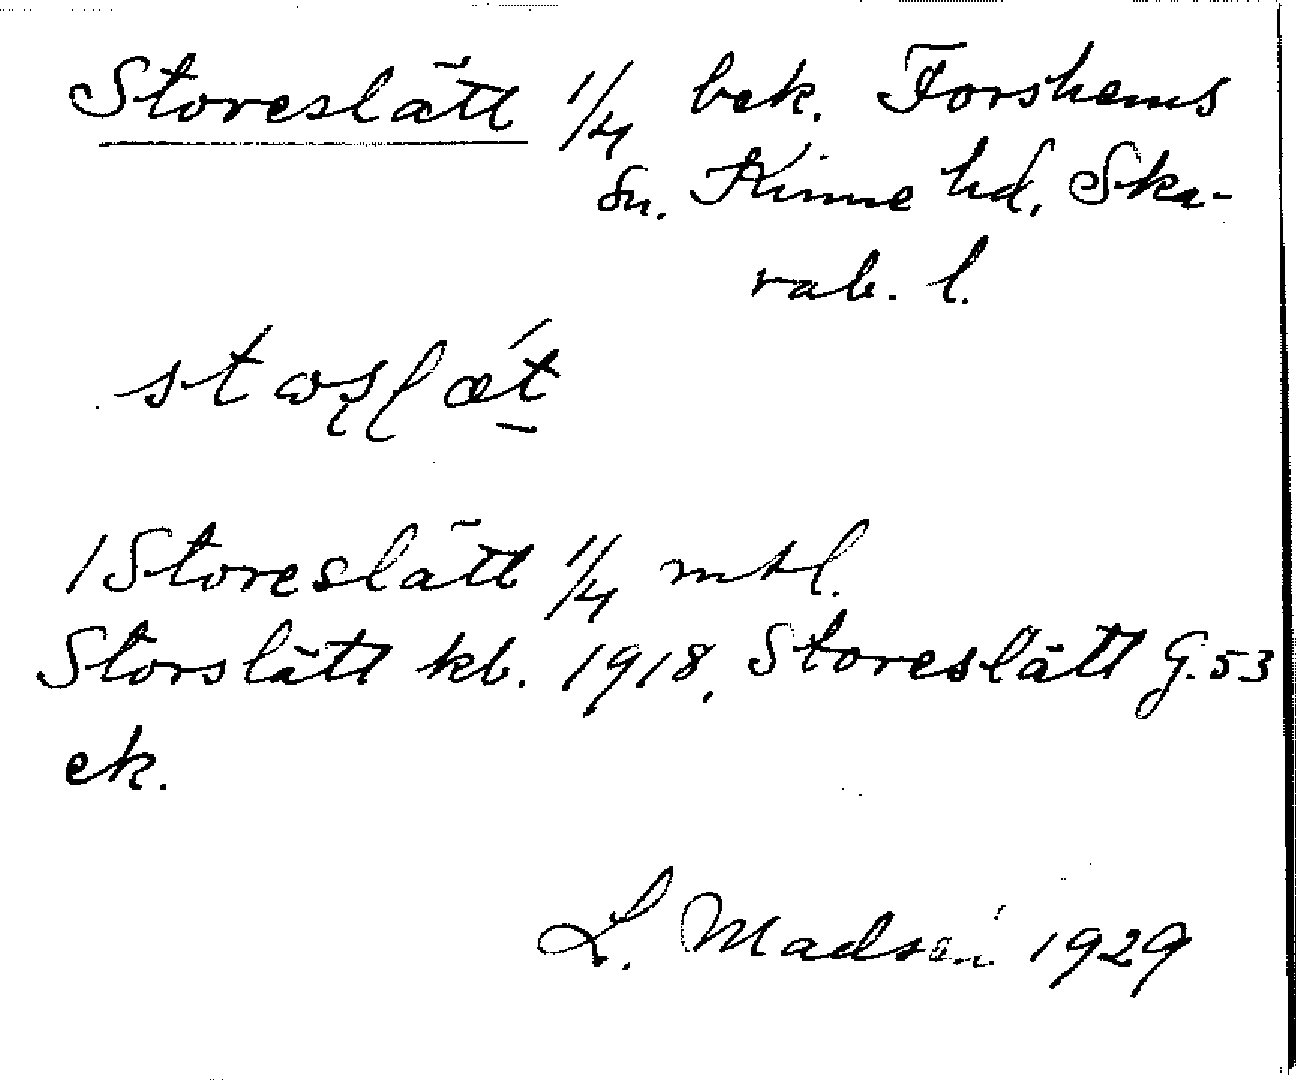 Storeslätt 1/4 bek. Forshems
Sn. Kinne hd, Ska-
rab. l.
1 Storeslätt 1/4 mtl.
Storslätt kb. 1918, Storeslätt G. 53
ek.
L. Madsén 1929